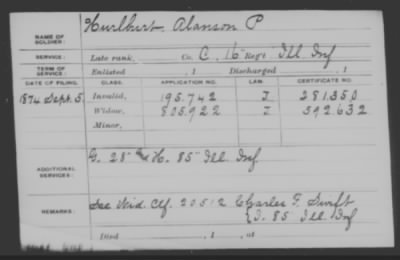 NAME OF SOLDIER: Hurlburt, Alanson P
SERVICE: Late rank, Co. C, 16 Reg't Ill. Inf
TERM OF SERVICE: Enlisted , 1 Discharged , 1
DATE OF FILING. CLASS. APPLICATION NO. LAW. CERTIFICATE NO.
1874 Sept. 5 Invalid, 195.742 I 281.350
Widow, 805.922 I 592.632
Minor,
ADDITIONAL SERVICES: G. 28 & K. 85 Ill. Inf
REMARKS: See Wid. Ctf. 20512 Charles F. Swift
{D. 85 Ill. Inf
Died , 1 , at